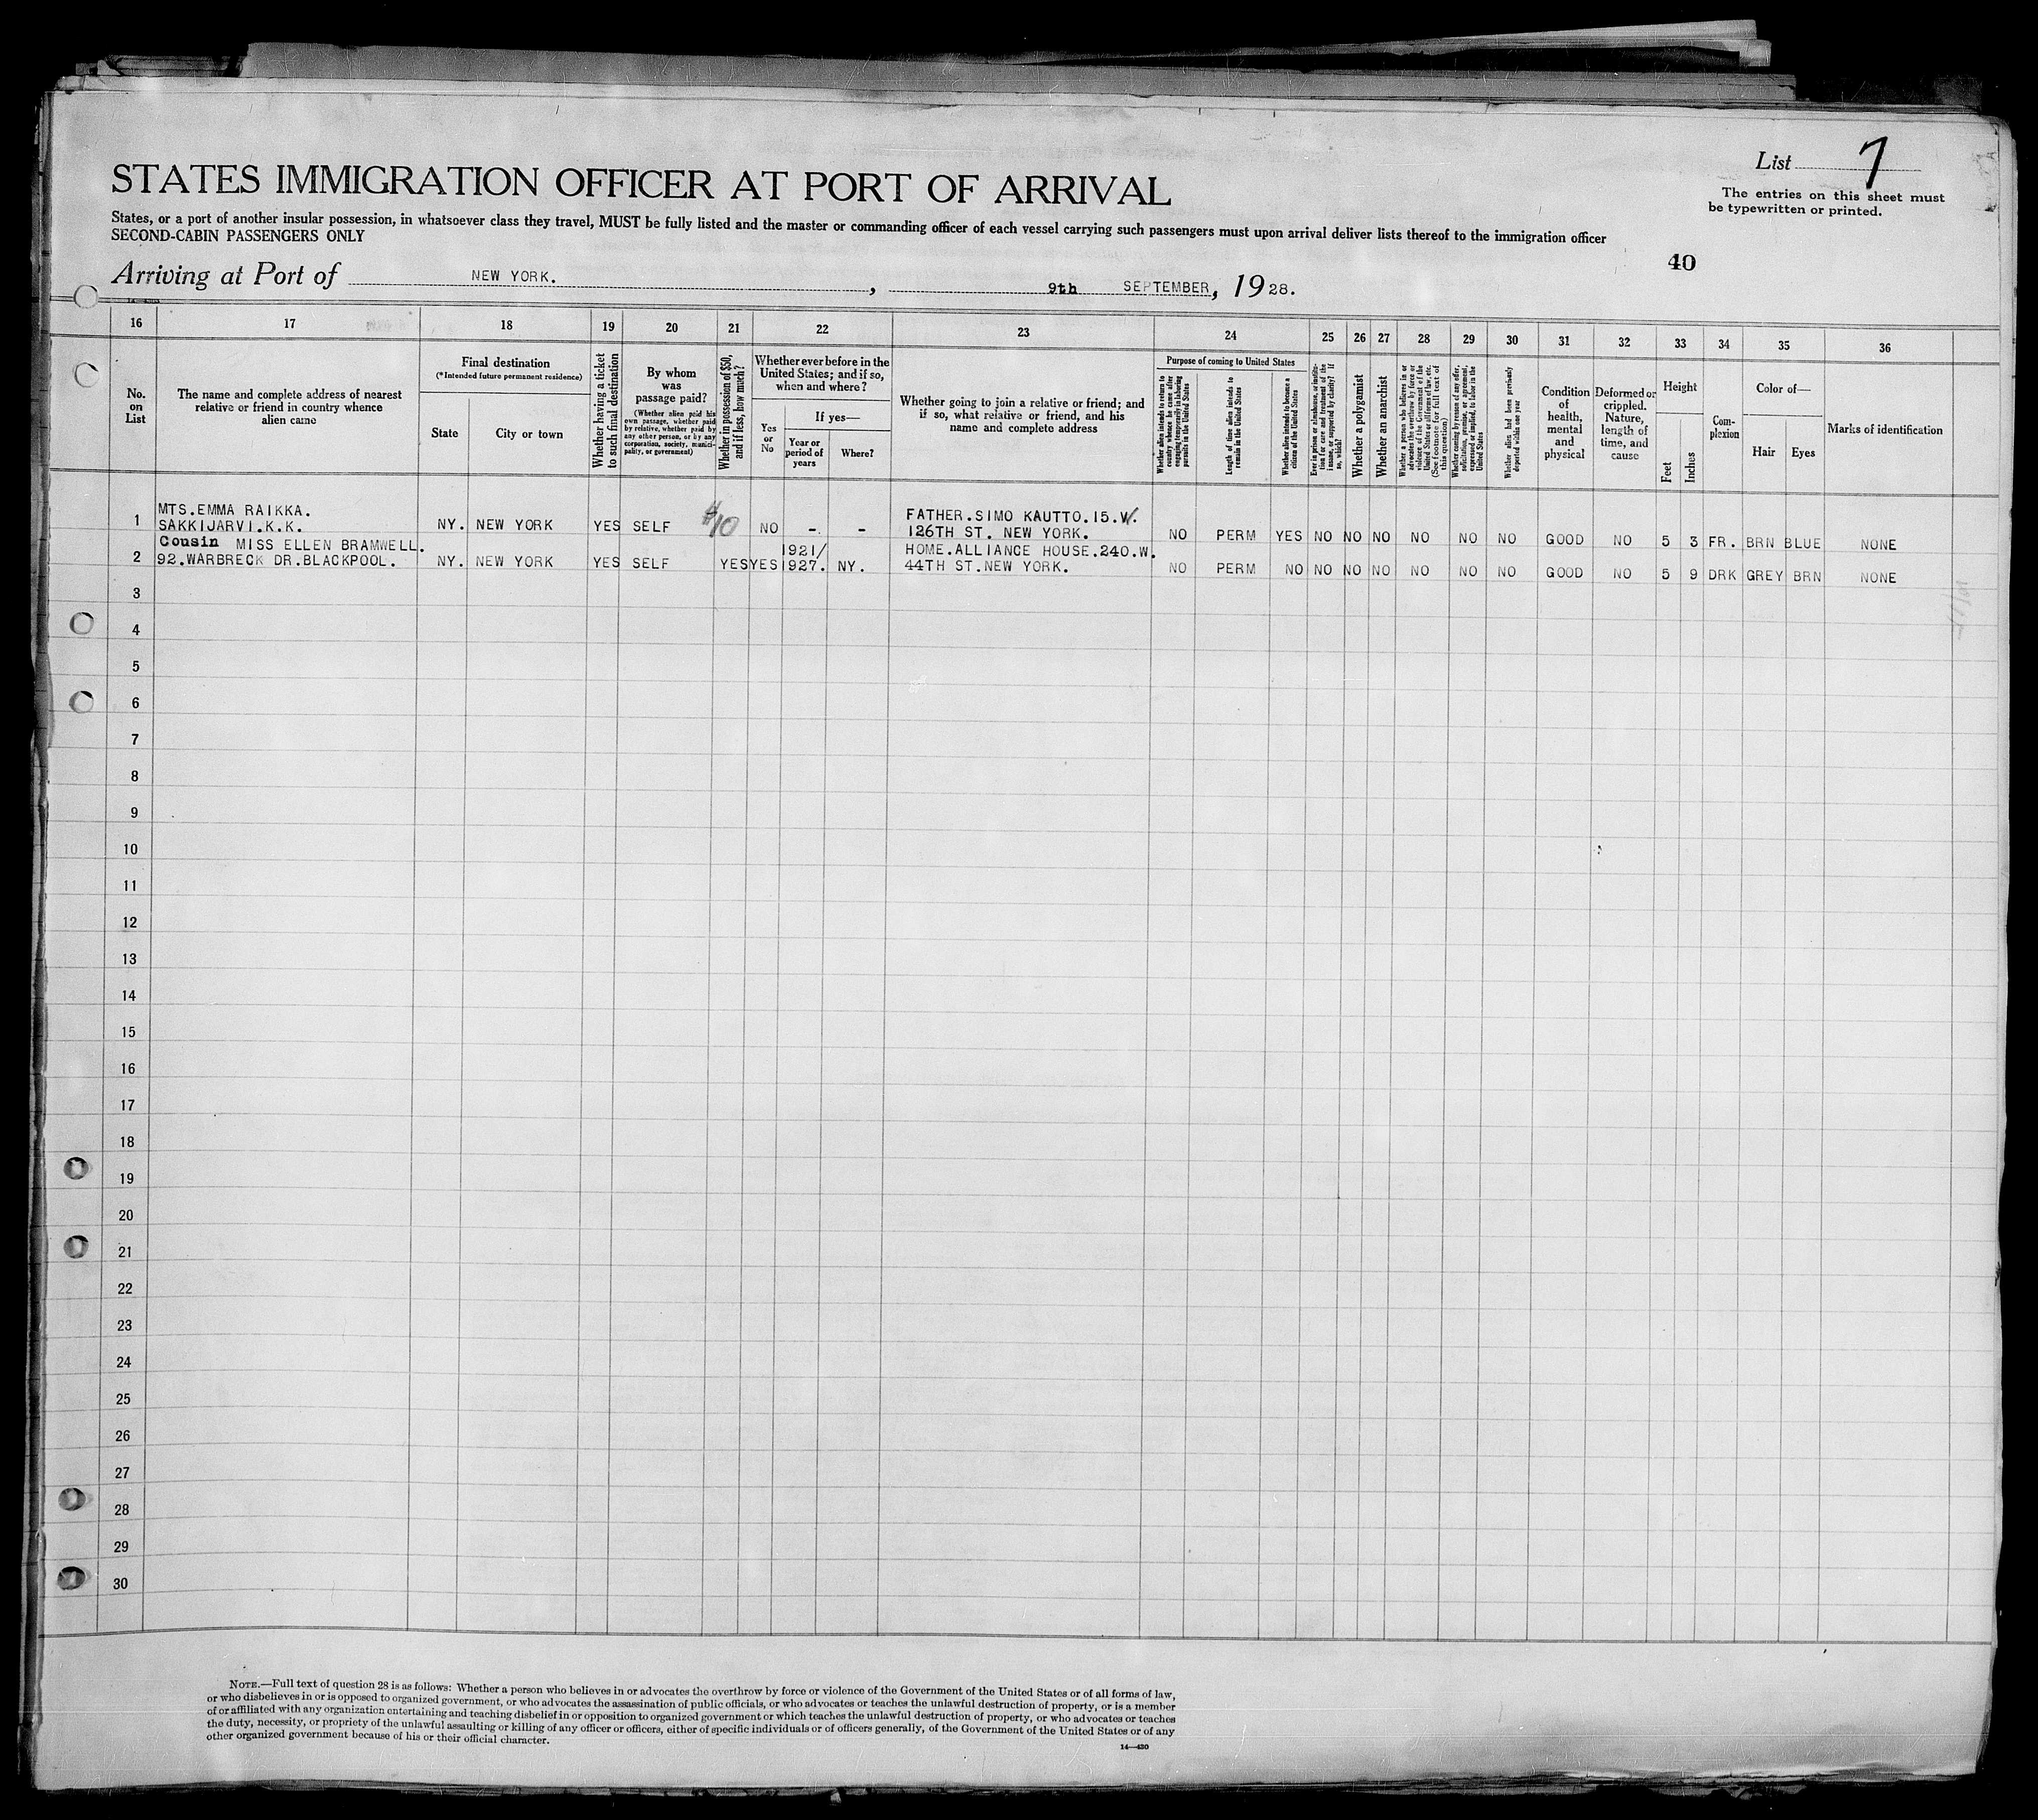 List 7
STATES IMMIGRATION OFFICER AT PORT OF ARRIVAL
The entries on this sheet must
be typewritten or printed.
States, or a port of another insular possession, in whatsoever class they travel, MUST be fully listed and the master or commanding officer of each vessel carrying such passengers must upon arrival deliver lists thereof to the immigration officer
SECOND-CABIN PASSENGERS ONLY
40
Arriving at Port of NEW YORK. , 9th SEPTEMBER, 1928.
16 17 18 19 20 21 22 23 24 25 26 27 28 29 30 31 32 33 34 35 36
No.
on
List
The name and complete address of nearest
relative or friend in country whence
alien came
Final destination
(*Intended future permanent residence)
State
City or town
Whether having a ticket
to such final destination
By whom
was
passage paid?
(Whether alien paid his
own passage, whether paid
by relative, whether paid by
any other person, or by any
corporation, society, munici-
pality, or government)
Whether in possession of $50,
and if less, how much?
Whether ever before in the
United States; and if so,
when and where?
Yes
or
No
If yes—
Year or
period of
years
Where?
Whether going to join a relative or friend; and
if so, what relative or friend, and his
name and complete address
Purpose of coming to United States
Whether alien intends to return to
country whence he came after
engaging temporarily in laboring
pursuits in the United States
Length of time alien intends to
remain in the United States
Whether alien intends to become a
citizen of the United States
Ever in prison or almshouse, or institu-
tion for care and treatment of the
insane, or supported by charity? If
so, which?
Whether a polygamist
Whether an anarchist
Whether a person who believes in or
advocates the overthrow by force or
violence of the Government of the
United States or all forms of law, etc.
(See footnote for full text of
this question)
Whether coming by reason of any offer,
solicitation, promise, or agreement,
expressed or implied, to labor in the
United States
Whether alien had been previously
deported within one year
Condition
of
health,
mental
and
physical
Deformed or
crippled.
Nature,
length of
time, and
cause
Height
Feet
Inches
Com-
plexion
Color of—
Hair
Eyes
Marks of identification
MTS.EMMA RAIKKA. FATHER.SIMO KAUTTO.15.W.
1 SAKKIJARVI.K.K. NY. NEW YORK YES SELF $10 NO - - 126TH ST. NEW YORK. NO PERM YES NO NO NO NO NO NO GOOD NO 5 3 FR. BRN BLUE NONE
Cousin MISS ELLEN BRAMWELL. 1921/ HOME.ALLIANCE HOUSE.240.W.
2 92.WARBRECK DR.BLACKPOOL. NY. NEW YORK YES SELF YES YES 1927. NY. 44TH ST.NEW YORK. NO PERM NO NO NO NO NO NO NO GOOD NO 5 9 DRK GREY BRN NONE
3
4
5
6
7
8
9
10
11
12
13
14
15
16
17
18
19
20
21
22
23
24
25
26
27
28
29
30
NOTE.—Full text of question 28 is as follows: Whether a person who believes in or advocates the overthrow by force or violence of the Government of the United States or of all forms of law,
or who disbelieves in or is opposed to organized government, or who advocates the assassination of public officials, or who advocates or teaches the unlawful destruction of property, or is a member
of or affiliated with any organization entertaining and teaching disbelief in or opposition to organized government or which teaches the unlawful destruction of property, or who advocates or teaches
the duty, necessity, or propriety of the unlawful assaulting or killing of any officer or officers, either of specific individuals or of officers generally, of the Government of the United States or of any
other organized government because of his or their official character.
14—430